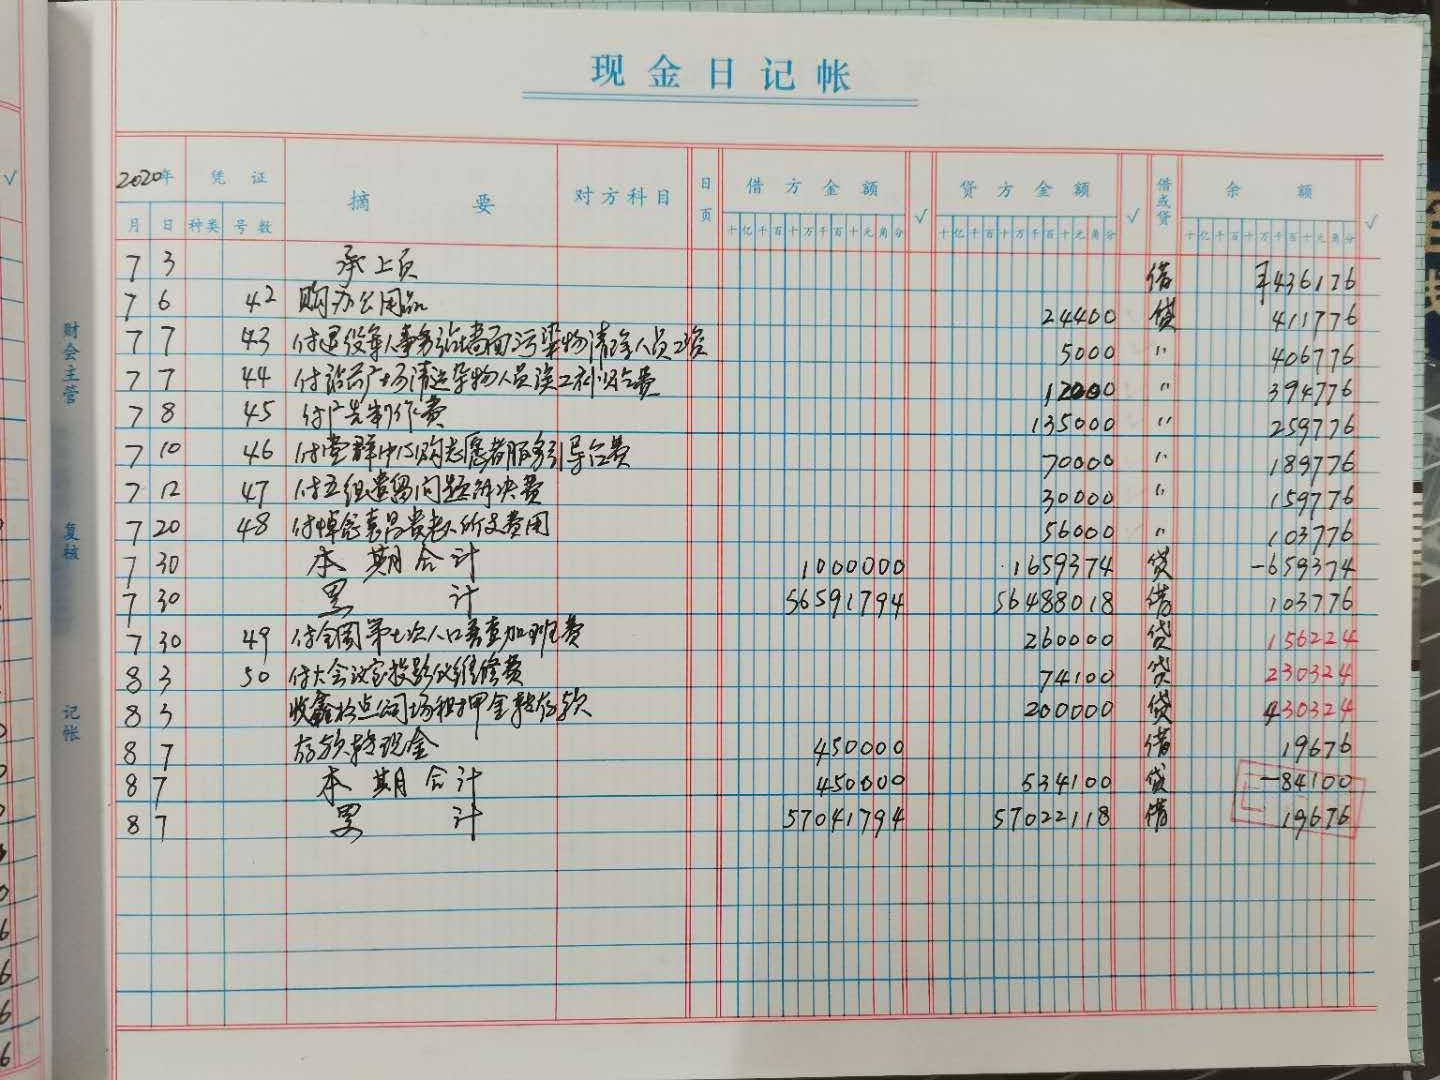 现金日记帐
2020年 凭证 摘要 对方科目 日页 借方金额 √ 贷方金额 √ 借或贷 余额 √
月 日 种类 号数 十亿千百十万千百十元角分 十亿千百十万千百十元角分 十亿千百十万千百十元角分
7 3 承上页 借 ¥436176
7 6 42 购办公用品 24400 贷 411776
7 7 43 付退役军人事务站墙面污染物清除人员工资 5000 〃 406776
7 7 44 付 广场清运杂物人员误工补贴费 12000 〃 394776
7 8 45 付广告制作费 135000 〃 259776
7 10 46 付党群中心购志愿者服务引导台费 70000 〃 189776
7 12 47 付五组遗留问题解决费 30000 〃 159776
7 20 48 付悼念 老人所支费用 56000 〃 103776
7 30 本期合计 1000000 1659374 贷 -659374
7 30 累计 56591794 56488018 借 103776
7 30 49 付全国第七次人口普查加班费 260000 贷 156224
8 3 50 付大会议室投影仪维修费 74100 贷 230324
8 3 收鑫 点公司场租押金转存款 200000 贷 430324
8 7 存款转现金 450000 借 19676
8 7 本期合计 450000 534100 贷 -84100
8 7 累计 57041794 57022118 借 19676
财会主管
复核
记帐